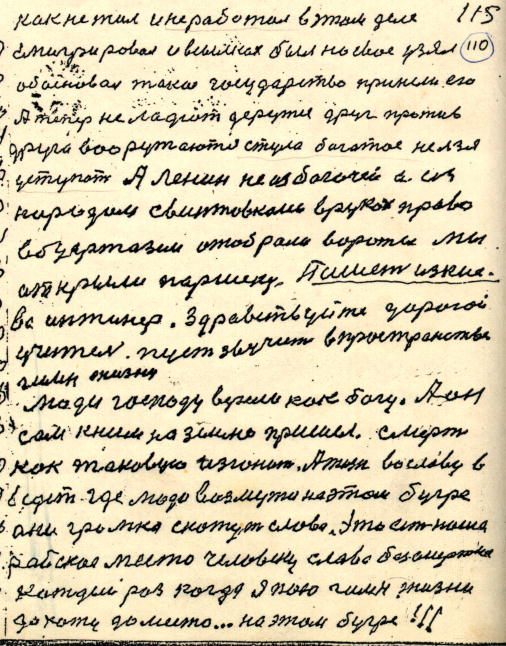 как не жил и не работал в этом деле 115
эмигрировал и в был на свое узял 110
обасновал такое государство принели его
А тепер не ладют дерутце друг против
друга вооружаютца стула багатое нелзя
уступат А Ленин не избогочей а из
народам свинтовками вруках право
в буержазии отобрали вороты мы
аткрыли паршеку. Пишет из кие-
ва инжинер. Здравствуйте дорогой
учител. пуст звучит впространстве
гимн жизни
Люди господу верели как богу. А он
сам кним на землю пришел. смерт
как таковую изгонит. А жизн вославу в
ведет где люде возмутца на этом бугре
они громка скажут слова. Это ест наша
райское место человеку слава безсмертие
Каждый роз когда я пою гимн жизни
до хожу до места... на этом бугре !!!